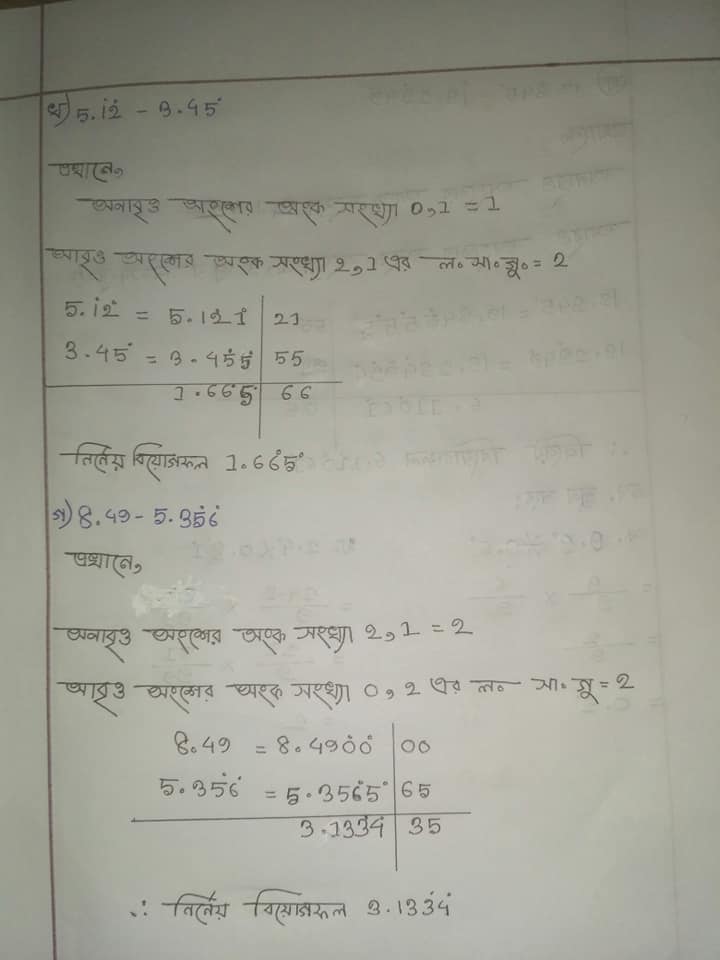 খ) 5.1̇2̇ - 3.45̇
এখানে,
অনাবৃত অংশের অংক সংখ্যা 0,1 = 1
আবৃত অংশের অংক সংখ্যা 2,1 এর ল. সা. গু. = 2
5.1̇2̇ = 5.12̇1̇ | 21
3.45̇ = 3.45̇5̇ | 55
1.66̇5̇ | 66
নির্নেয় বিয়োগফল 1.66̇5̇
গ) 8.49 - 5.35̇6̇
এখানে,
অনাবৃত অংশের অংক সংখ্যা 2,1 = 2
আবৃত অংশের অংক সংখ্যা 0,2 এর ল. সা. গু = 2
8.49 = 8.490̇0̇ | 00
5.35̇6̇ = 5.356̇5̇ | 65
3.1334 | 35
∴ নির্নেয় বিয়োগফল 3.133̇4̇